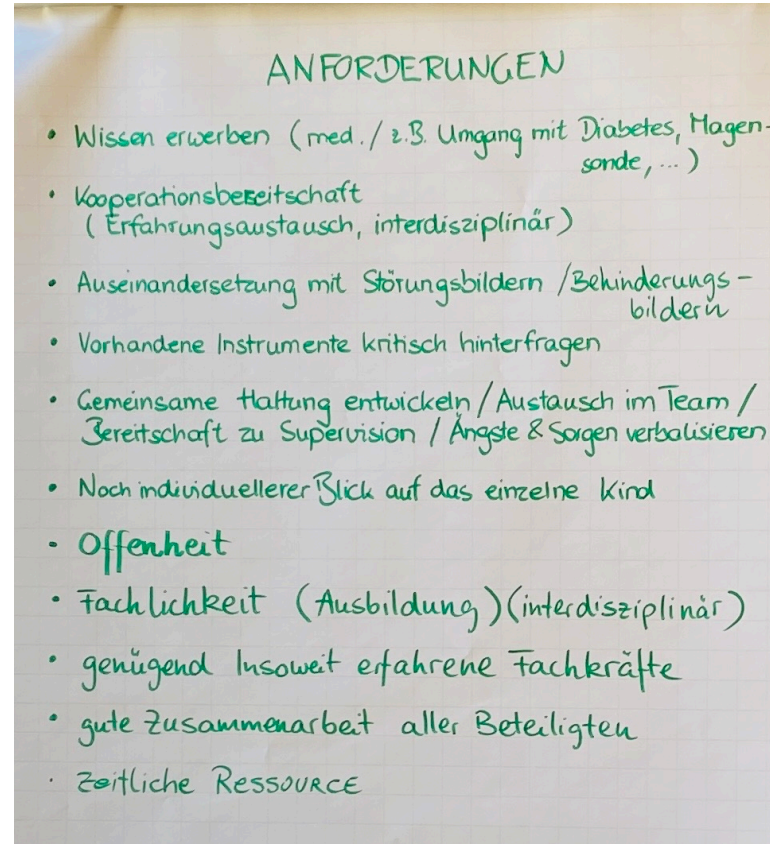 ANFORDERUNGEN
• Wissen erwerben (med. / z.B. Umgang mit Diabetes, Magen-
sonde, ...)
• Kooperationsbereitschaft
(Erfahrungsaustausch, interdisziplinär)
• Auseinandersetzung mit Störungsbildern / Behinderungs-
bildern
• Vorhandene Instrumente kritisch hinterfragen
• Gemeinsame Haltung entwickeln / Austausch im Team /
Bereitschaft zu Supervision / Ängste & Sorgen verbalisieren
• Noch individuellerer Blick auf das einzelne Kind
• Offenheit
• Fachlichkeit (Ausbildung) (interdisziplinär)
• genügend Insoweit erfahrene Fachkräfte
• gute Zusammenarbeit aller Beteiligten
• Zeitliche RESSOURCE